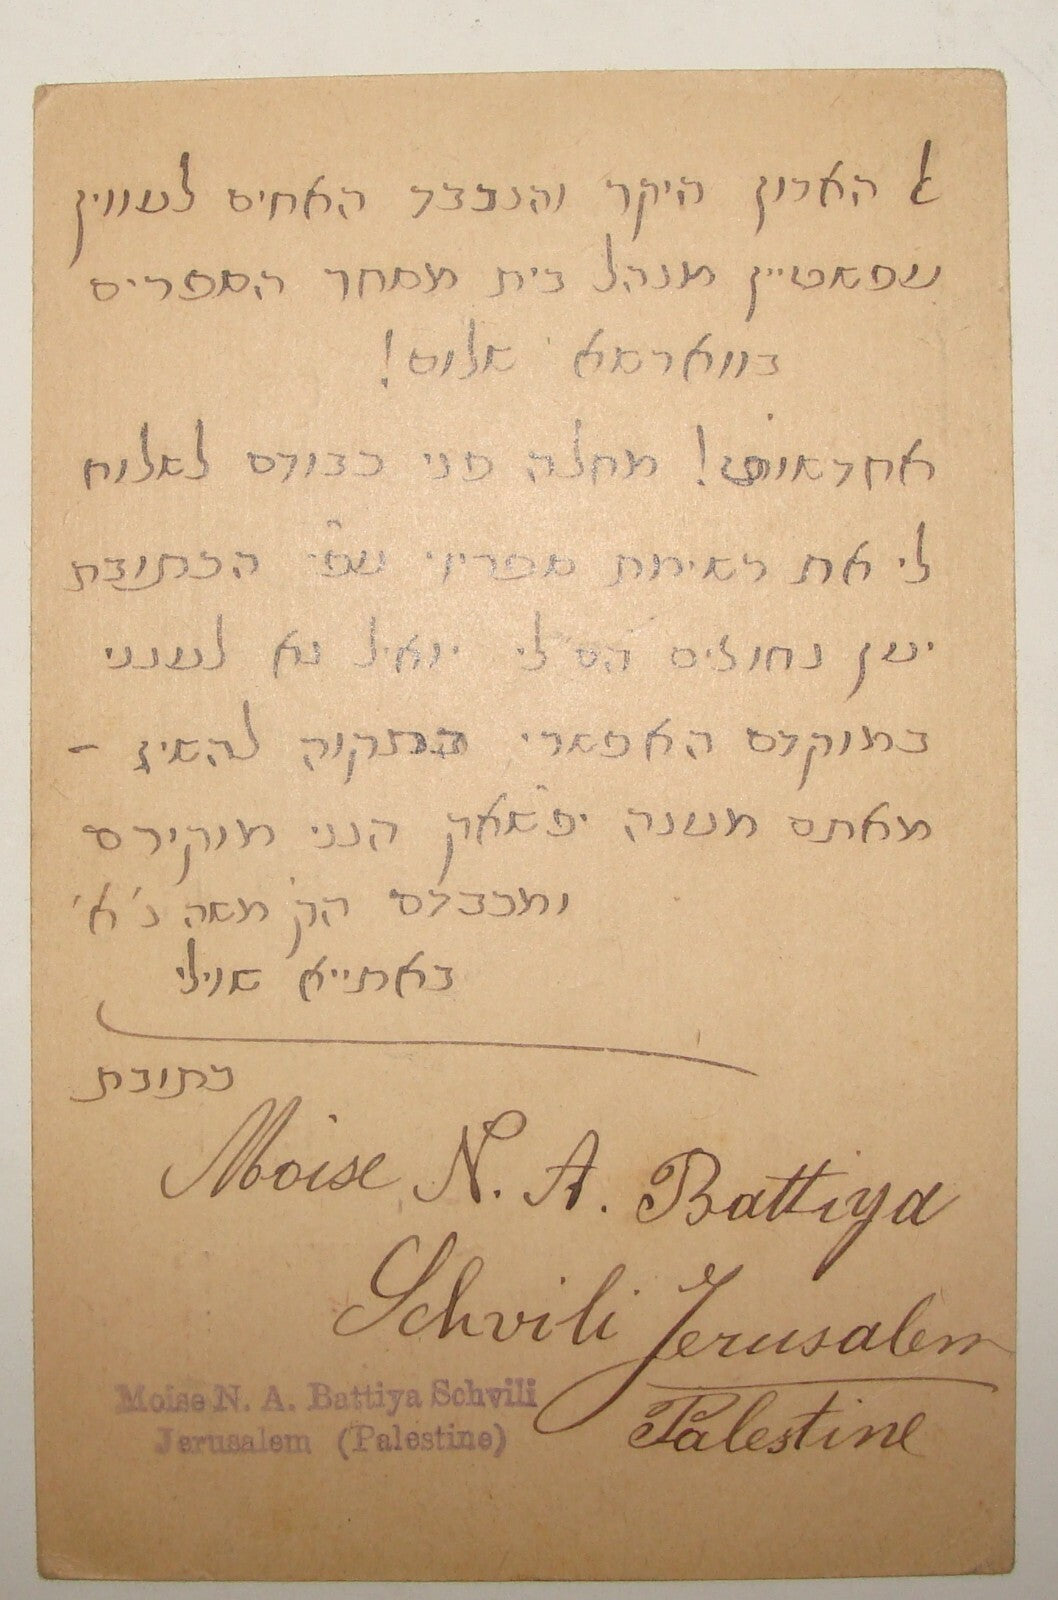 ג האדון היקר והנכבד האחים לעווין
עפשטיין מנהל בית מסחר הספרים
בווארשא שלום!
אחדשו"ט! מחלה פני כבודם לשלוח
לי את רשימת ספריו עפ"י הכתובת
ישן נחוצים לי יואיל נא לענני
במוקדם האפשרי בתקוה להשיג –
מאתם מענה הנני מוקירם
ומכבדם הק' משה נ' א'
באתייא שוילי
כתובת
Moise N. A. Battiya
Schvili Jerusalem
Palestine
Moise N. A. Battiya Schvili
Jerusalem (Palestine)